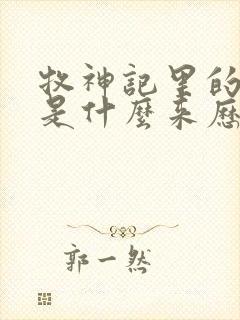 牧神記里的
是什麼來歷
郭一然